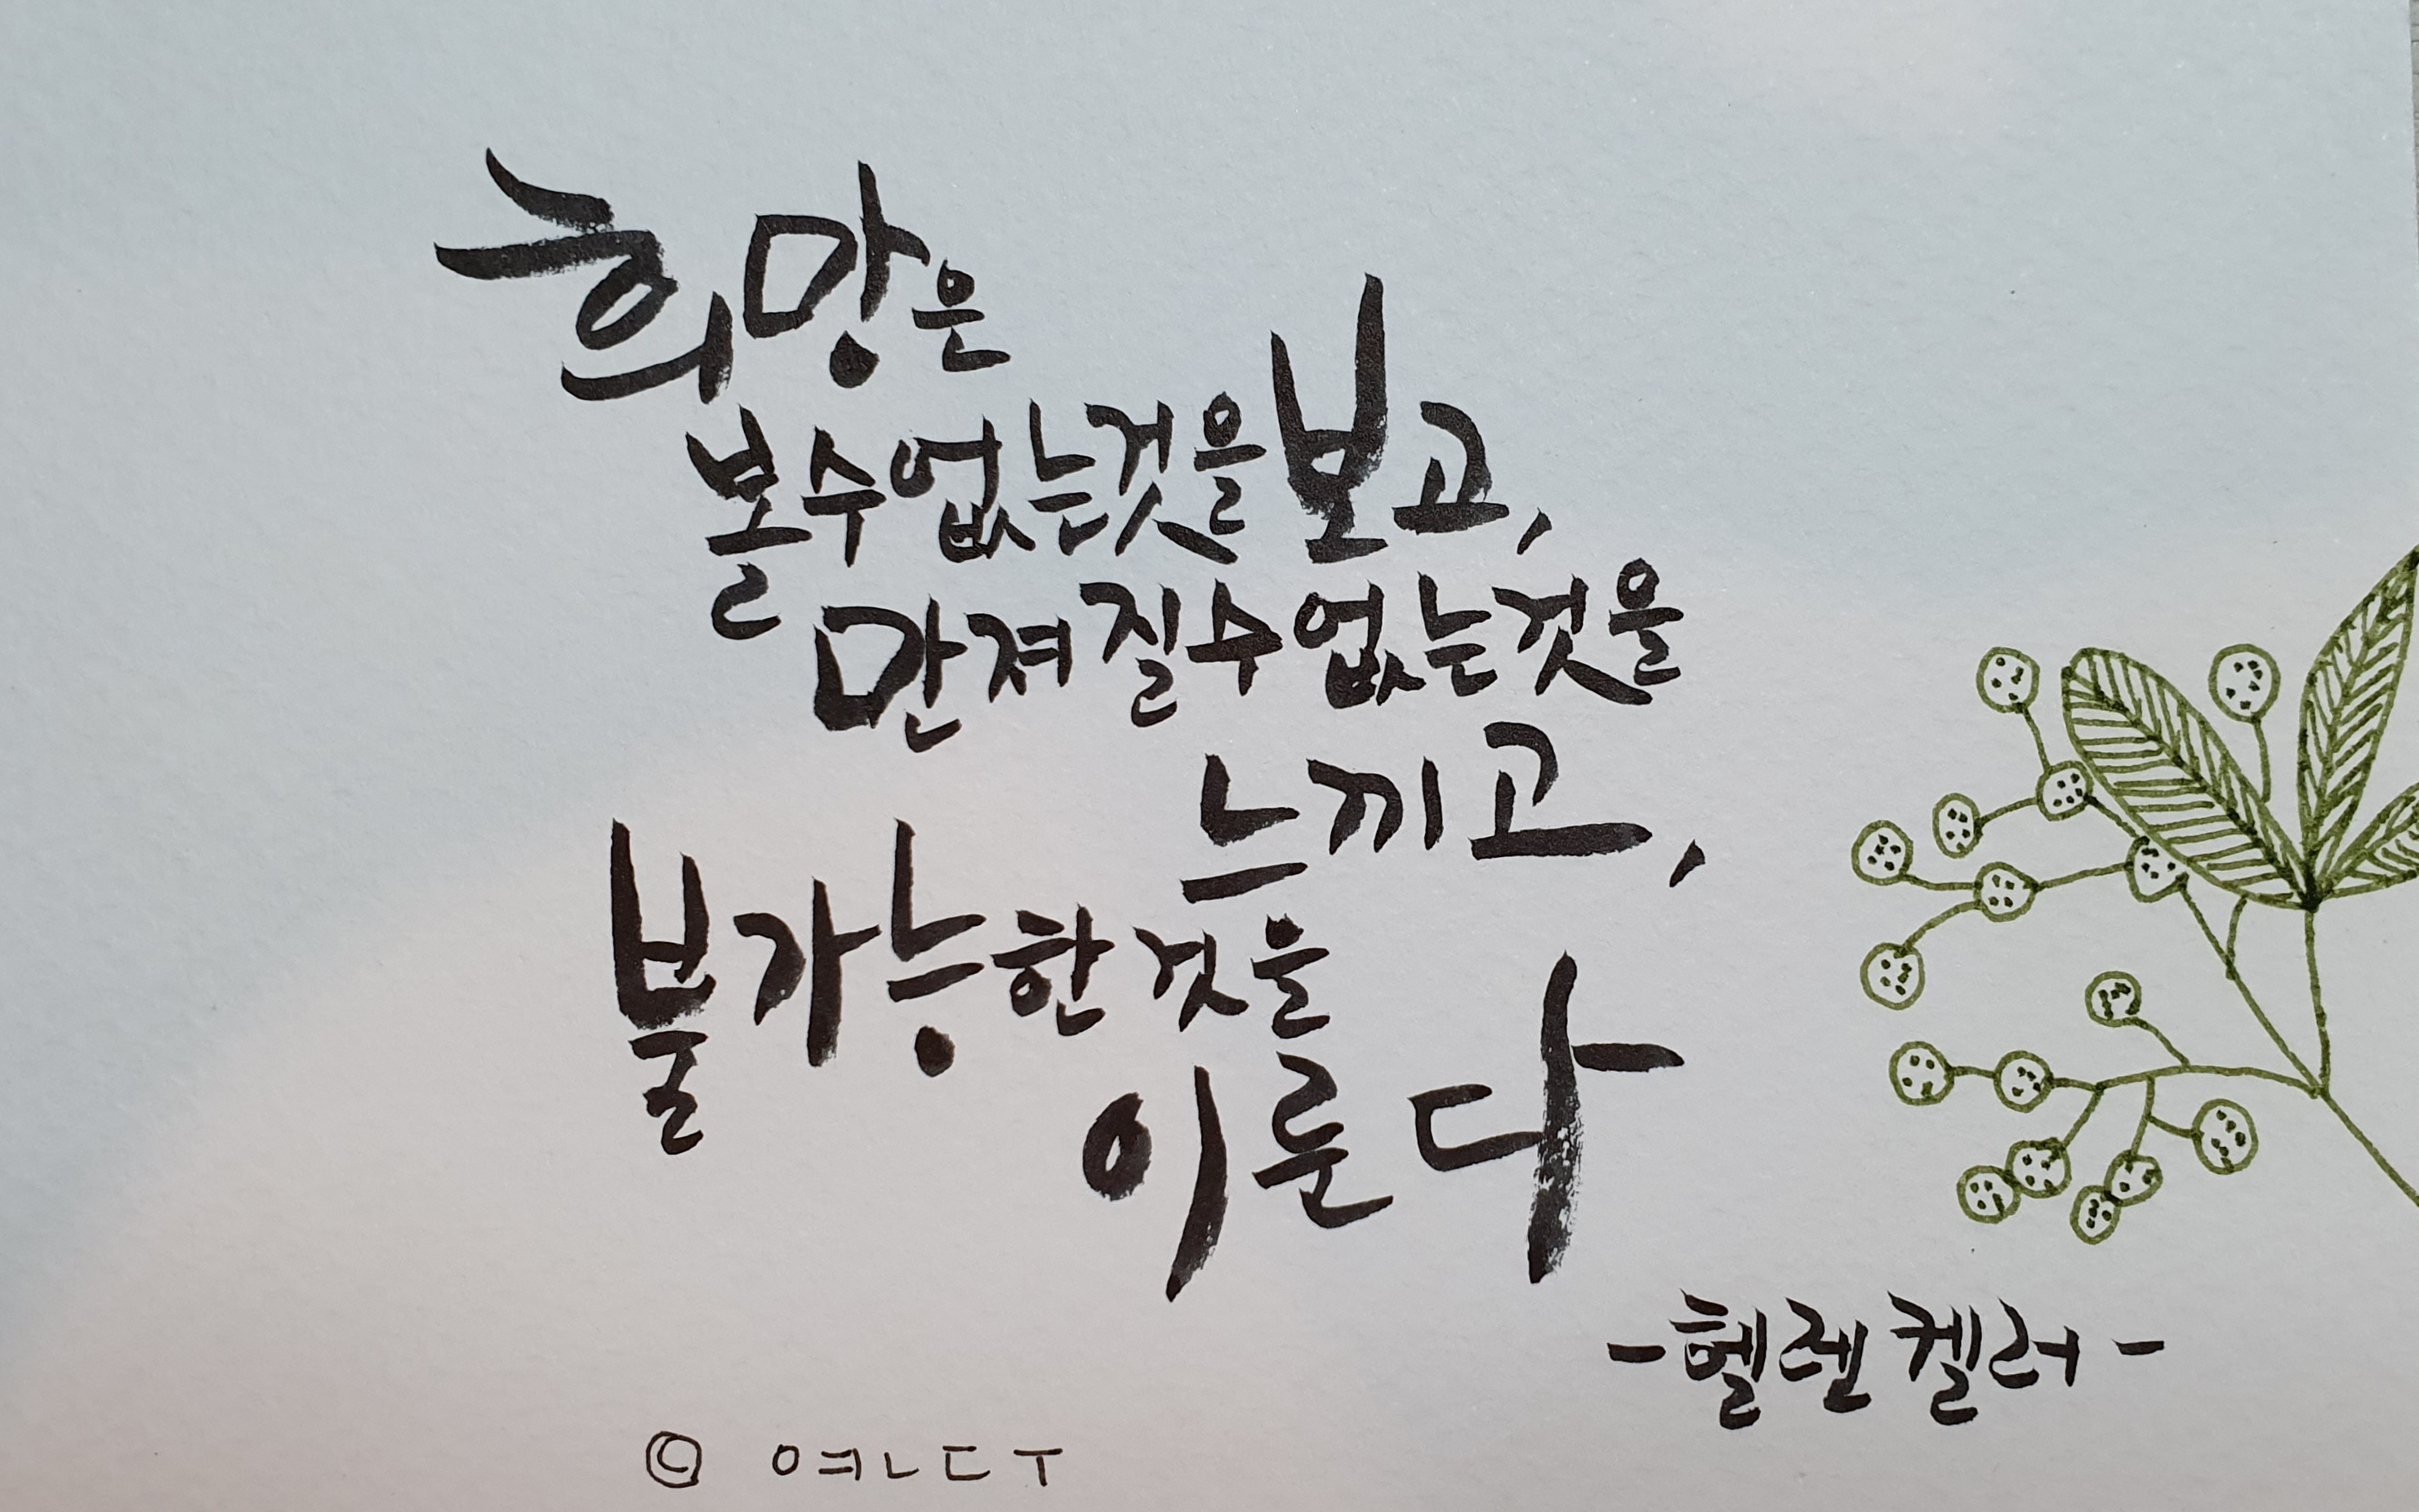 희망은
볼수없는것을보고,
만져질수없는것을
느끼고,
불가능한것을
이룬다
-헬렌켈러-
© ㅇㅖㄴㄷㅜ